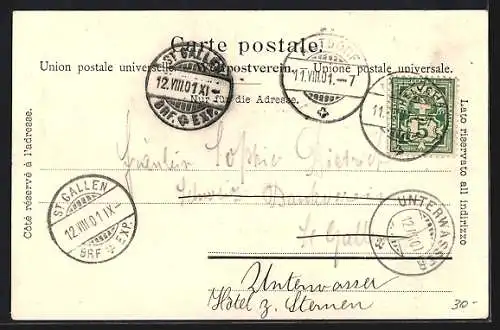 Carte postale.
Union postale universelle. Weltpostverein. Unione postale universale.
Nur für die Adresse.
Côté réservé à l'adresse.
Lato riservato all indirizzo
ST. GALLEN
12.VIII.01 XI-
BRF. EXP.
11.VIII.01.-7
HELVETIA
5
Fräulein Sophie
Schweiz
St Gallen
ST. GALLEN
12.VIII.01 IX-
BRF. EXP.
UNTERWASSER
Unterwasser
Hotel z. Sternen
30-